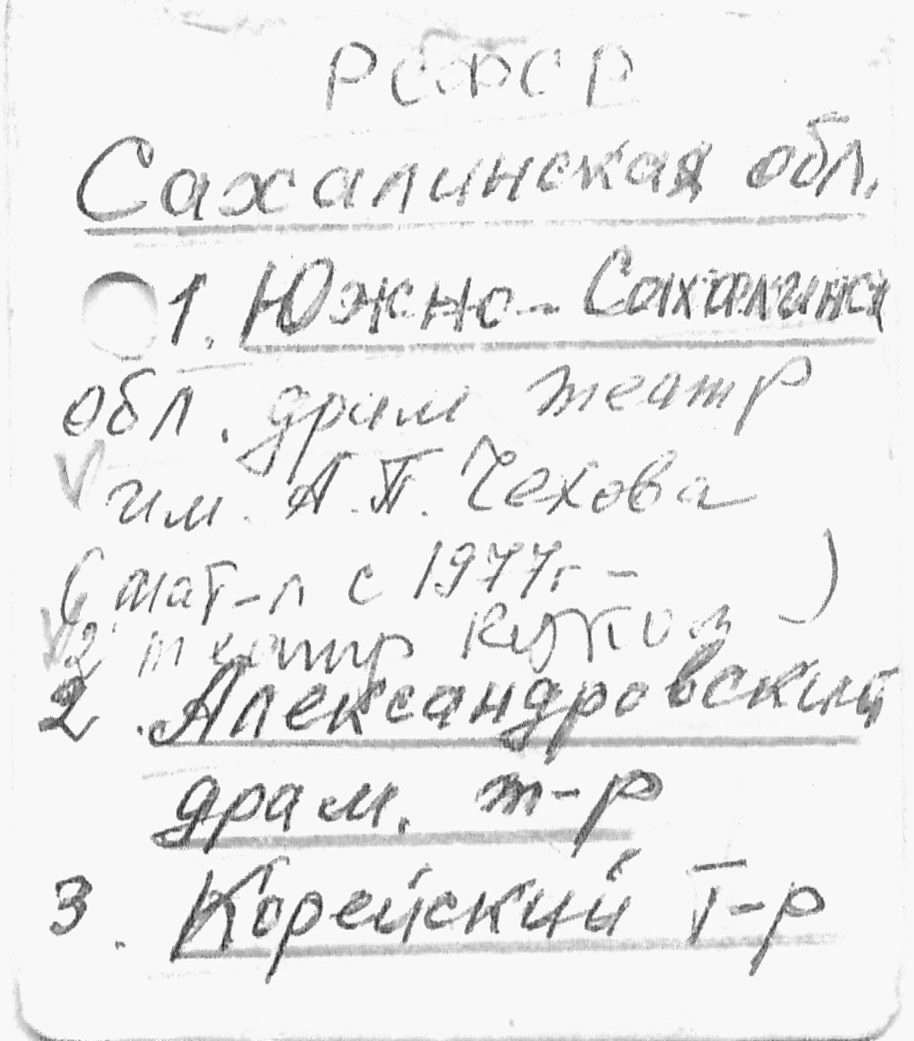 РСФСР
Сахалинская обл.
1. Южно-Сахалинск
обл. драм театр
им. А.П. Чехова
(мат-л с 1977г - )
2 театр кукол
2. Александровский
драм. т-р
3. Корейский т-р